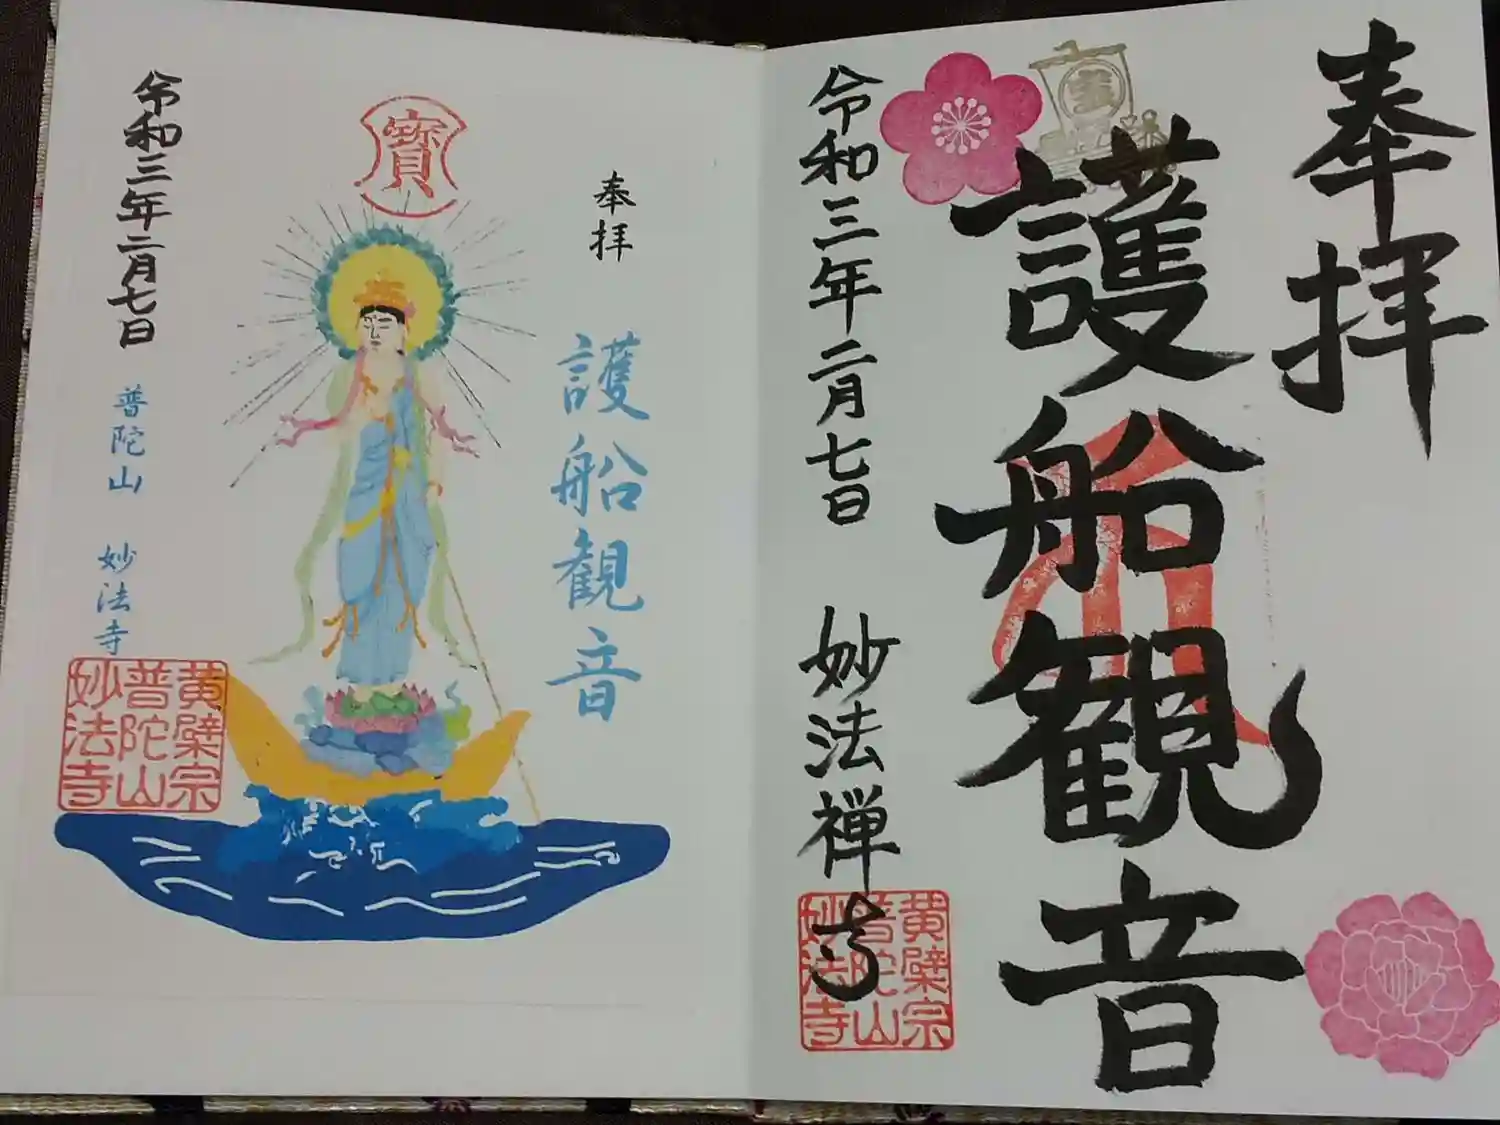 奉拝
護船観音
令和三年二月七日
妙法禅寺
黄檗宗
普陀山
妙法寺
奉拝
寳
護船観音
令和三年二月七日
普陀山
妙法寺
黄檗宗
普陀山
妙法寺